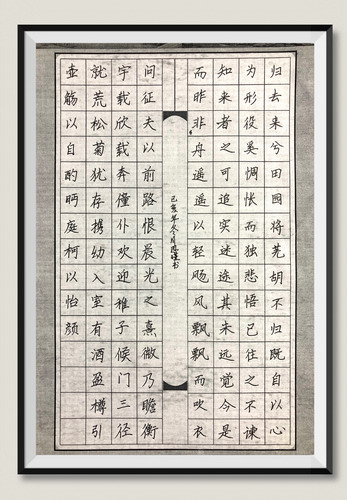 归去来兮田园将芜胡不归既自以心
为形役奚惆怅而独悲悟已往之不谏
知来者之可追实迷途其未远觉今是
而昨非舟遥遥以轻飏风飘飘而吹衣
己亥年冬月书
问征夫以前路恨晨光之熹微乃瞻衡
宇载欣载奔僮仆欢迎稚子候门三径
就荒松菊犹存携幼入室有酒盈樽引
壶觞以自酌眄庭柯以怡颜